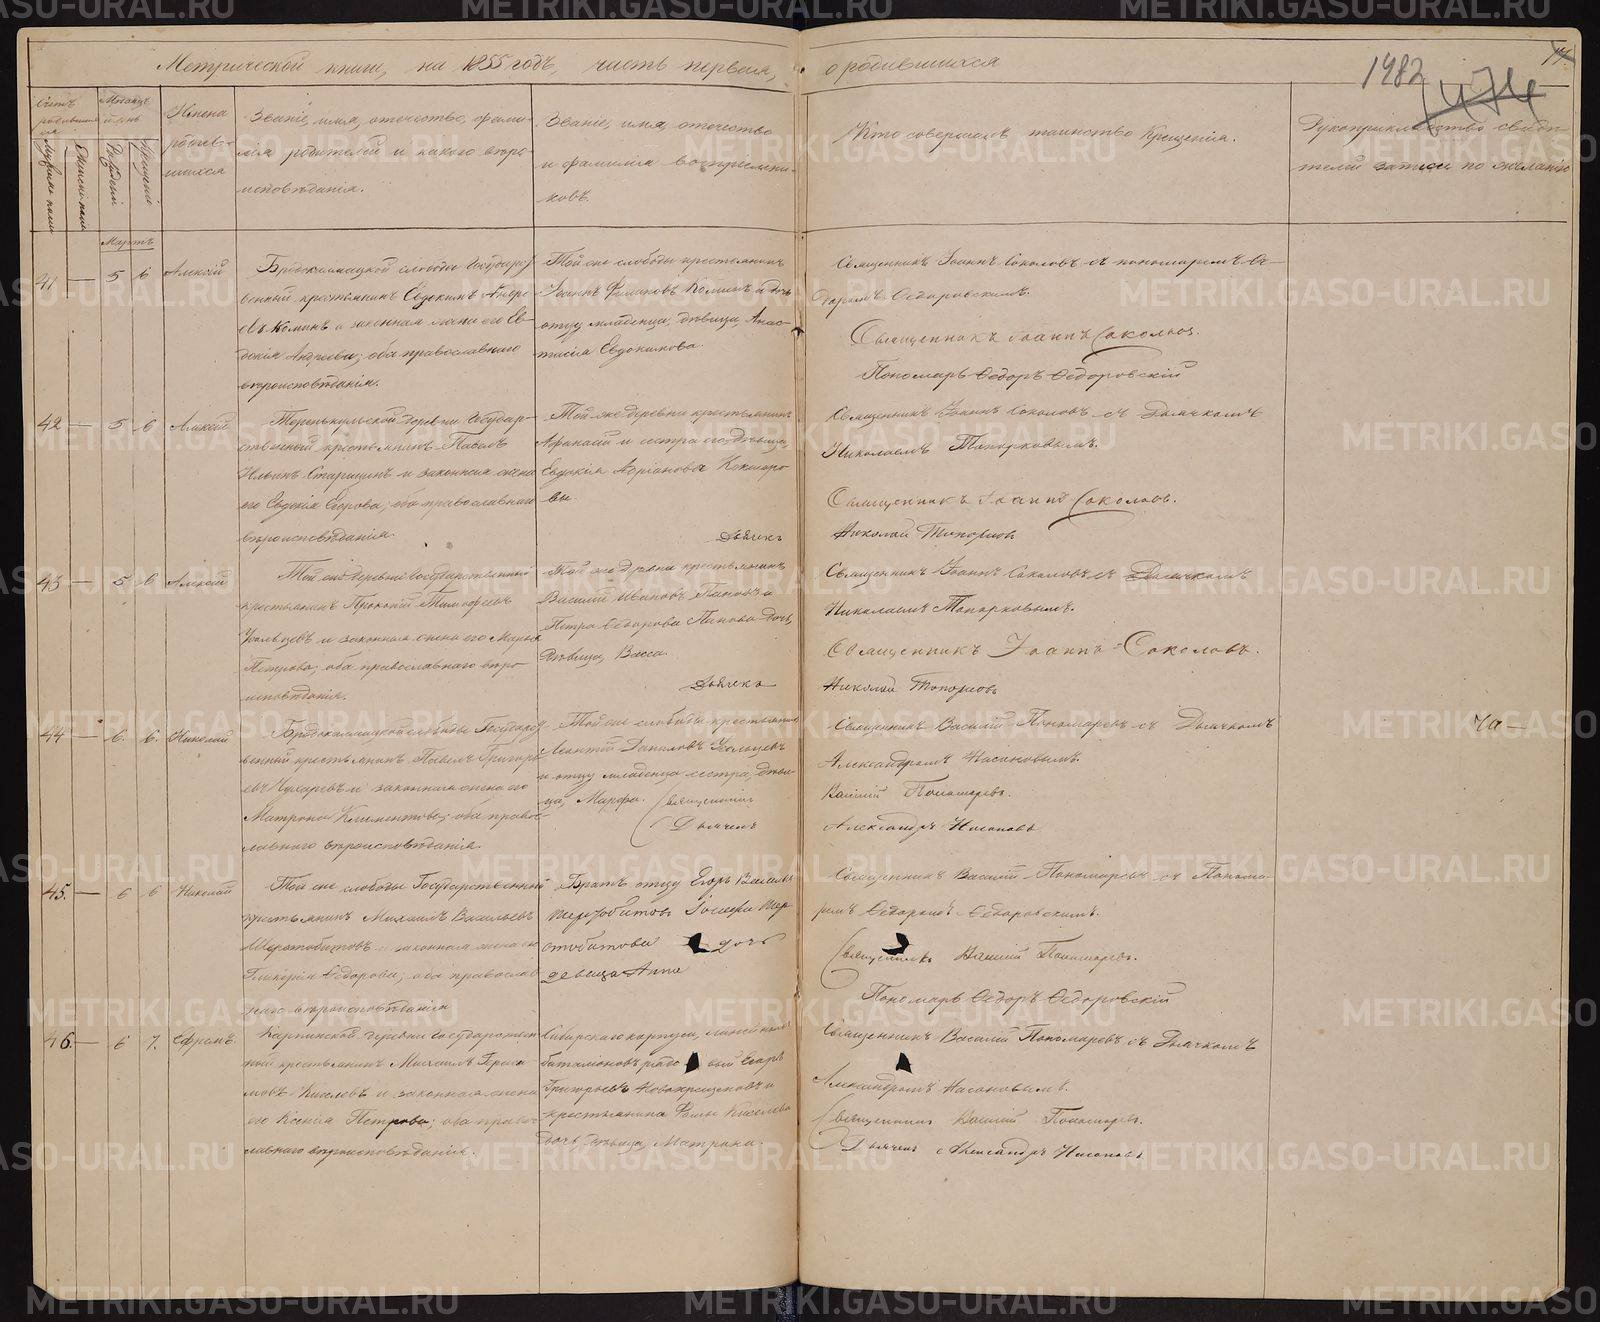 Метрической книги, на 1855 годъ, часть первая, о родившихся
1982
Счетъ родившихся
Мужеска пола
Женска пола
Мѣсяцъ и день
Рожденія
Крещенія
Имена родившихся
Званіе, имя, отечество, фами-
лія родителей и какого вѣро-
исповѣданія.
Званіе, имя, отечество
и фамилія воспріемни-
ковъ.
Кто совершалъ таинство Крещенія.
Рукоприкладство свидѣ-
телей записи по желанію
Мартъ
41 — 5 6 Алексій
Бродокалмацкой слободы Государст-
венный крестьянинъ Евдокимъ Андре-
евъ Коминъ и законная жена его Ев-
докія Андреева; оба православнаго
вѣроисповѣданія.
Той же слободы крестьянинъ
Іоаннъ Коминъ и дочь
отцу младенца, дѣвица, Анас-
тасія Евдокимова.
Священникъ Іоаннъ Соколовъ съ пономаремъ Ѳе-
доромъ Ѳедоровскимъ.
Священникъ Іоаннъ Соколовъ.
Пономарь Ѳедоръ Ѳедоровскій
42 — 5 6 Алексій
Теренькульской деревни Государ-
ственный крестьянинъ Павелъ
Ильинъ Старицинъ и законная жена
его Евдокія Егорова; оба православнаго
вѣроисповѣданія.
Той же деревни крестьянинъ
Афанасій и сестра его, дѣвица,
Евдокія Адріановы Кокшаро-
вы.
Дьячекъ
Священникъ Іоаннъ Соколовъ съ Дьячкомъ
Николаемъ Топорковымъ.
Священникъ Іоаннъ Соколовъ.
Николай Топорковъ
43 — 5 6 Алексій
Той же деревни Государственный
крестьянинъ Прокопій Тимофеевъ
Усольцевъ и законная жена его Марья
Петрова; оба православнаго вѣро-
исповѣданія.
Той же деревни крестьянинъ
Василій Ивановъ Пановъ и
Петра Ѳедорова Панова дочь,
дѣвица, Васса.
Дьячекъ
Священникъ Іоаннъ Соколовъ съ Дьячкомъ
Николаемъ Топорковымъ.
Священникъ Іоаннъ Соколовъ.
Николай Топорковъ
44 — 6. 6. Николай
Бродокалмацкой слободы Государст-
венный крестьянинъ Павелъ Григорь-
евъ Пухаревъ и законная жена его
Матрона Климентова; оба право-
славнаго вѣроисповѣданія.
Той же слободы крестьянинъ
Леонтій Даниловъ Усольцевъ
и отцу младенца сестра, дѣви-
ца, Марфа. Священникъ
Дьячекъ
Священникъ Василій Пономаревъ съ Дьячкомъ
Александромъ Насоновымъ.
Василій Пономаревъ.
Александръ Насоновъ
45. — 6 6 Николай
Той же слободы Государственный
крестьянинъ Михаилъ Васильевъ
Шерстобитовъ и законная жена его
Гликерія Ѳедорова; оба православ-
наго вѣроисповѣданія
Братъ отцу Егоръ Васильевъ
Шерстобитовъ Іосифа Шер-
стобитова дочь
девица Анна
Священникъ Василій Пономаревъ съ Понома-
ремъ Ѳедоромъ Ѳедоровскимъ.
Священникъ Василій Пономаревъ.
Пономарь Ѳедоръ Ѳедоровскій
46. — 6 7. Ефремъ
деревни Государствен-
ной крестьянинъ Михаилъ Гераси-
мовъ Киселевъ и законная жена
его Ксенія Петрова; оба право-
славнаго вѣроисповѣданія.
Сибирскаго корпуса, линейныхъ
баталіоновъ рядовый Егоръ
Григорьевъ Новокрещеновъ и
крестьянина Киселева
дочь дѣвица, Матрона.
Священникъ Василій Пономаревъ съ Дьячкомъ
Александромъ Насоновымъ.
Священникъ Василій Пономаревъ.
Дьячекъ Александръ Насоновъ
METRIKI.GASO-URAL.RU